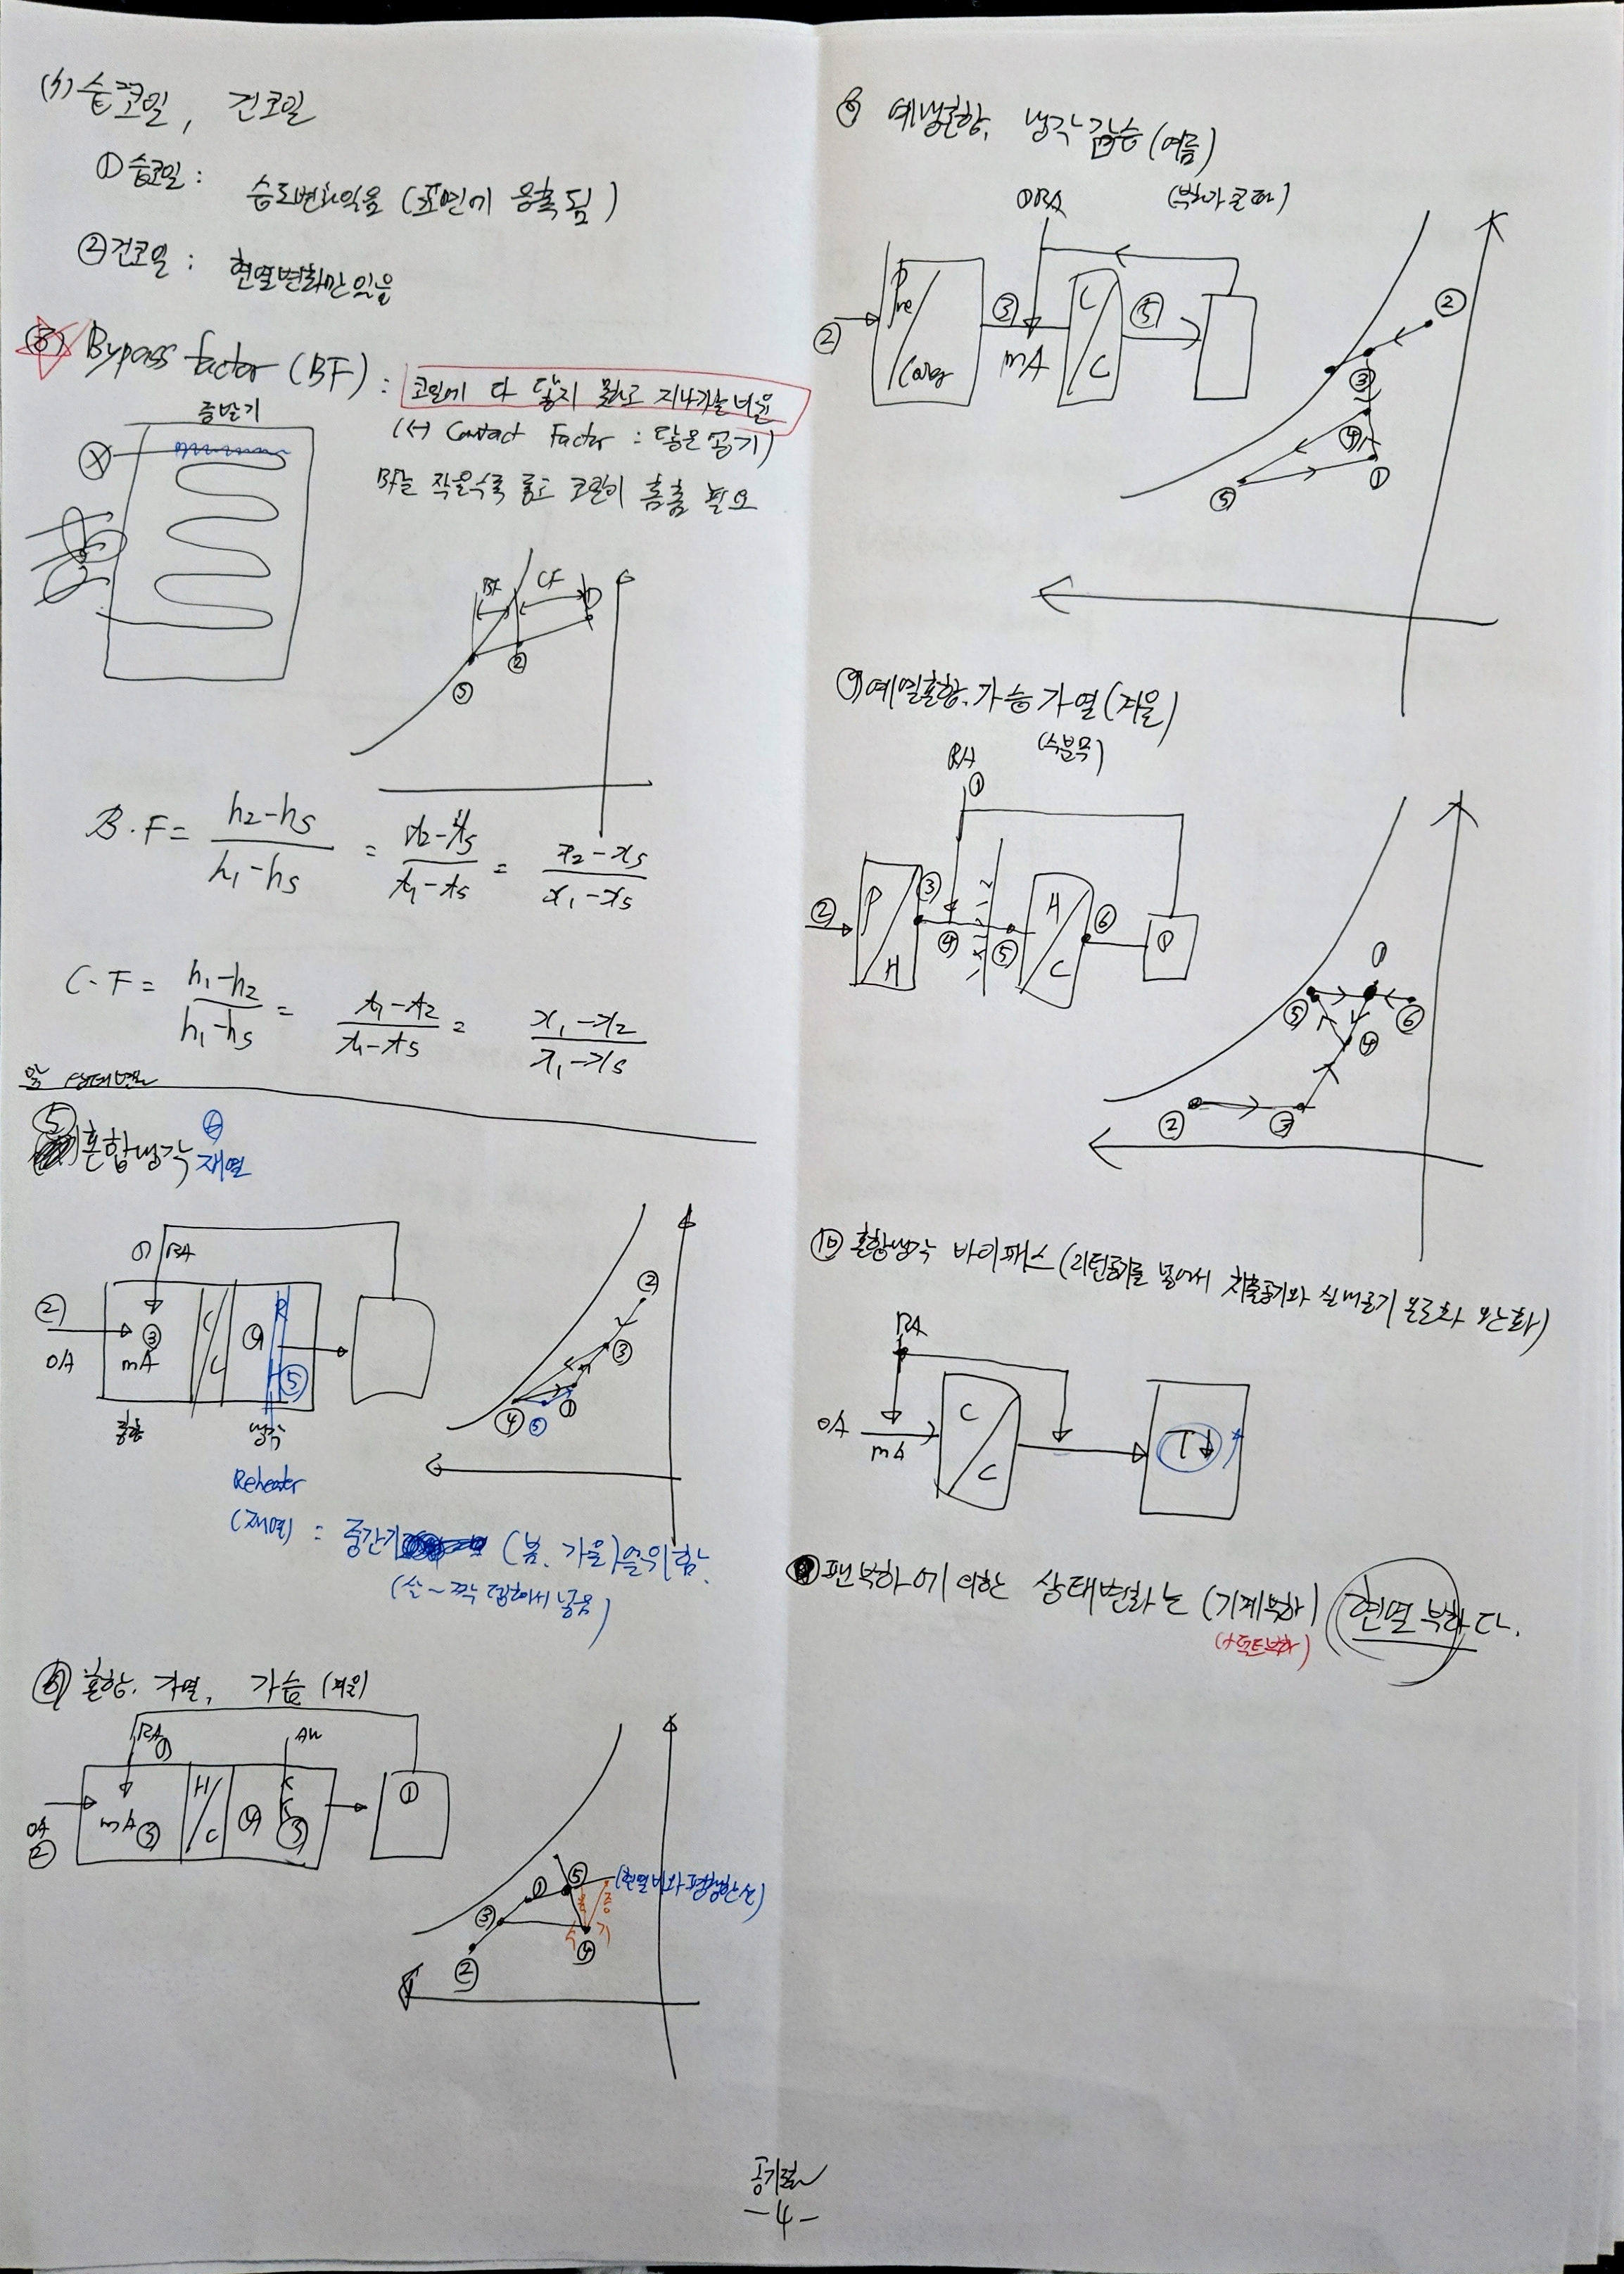 (5) 습코일, 건코일
① 습코일 : 습도변화있음 (표면에 응축됨)
② 건코일 : 현열변화만 있음
⑥ Bypass factor (BF) : 코일에 다 닿지 못하고 지나가는 비율
(↔ Contact Factor : 닿은 공기)
BF는 작을수록 좋고 코일이 촘촘 필요
증발기
BF CF
①
②
Ⓢ
B.F = h2-hs / h1-hs = t2-ts / t1-ts = x2-xs / x1-xs
C.F = h1-h2 / h1-hs = t1-t2 / t1-ts = x1-x2 / x1-xs
⑤ 혼합냉각 재열
① RA
② OA
③ mA
C/C
④
R H
⑤
혼합 냉각
② ③ ① ④ ⑤
Reheater
(재열) : 중간기 (봄, 가을)을 위함.
⑥ 혼합, 가열, 가습 (겨울)
RA ①
OA ②
mA ③
H/C
④
⑤
①
① ⑤ (현열비와 평행한 선)
③
② ④
수분무 증기
⑧ 예냉혼합, 냉각감습 (여름)
(부하가 큰 하)
① RA
②
Pre / Cooling
③
mA
C/C
⑤
② ③ ④ ① ⑤
⑨ 예열혼합, 가습 가열 (겨울)
(수분무)
RA ①
②
P/H
③ ④ ⑤
H/C
⑥
①
① ⑤ ⑥ ④ ② ③
⑩ 혼합냉각 바이패스 (리턴공기를 넣어서 취출공기와 실내공기 온도차 완화)
RA
OA
mA
C/C
T↓
팬부하에 의한 상태변화는 (기계부하) 현열부하다.
(+덕트부하)
공기조화
-4-